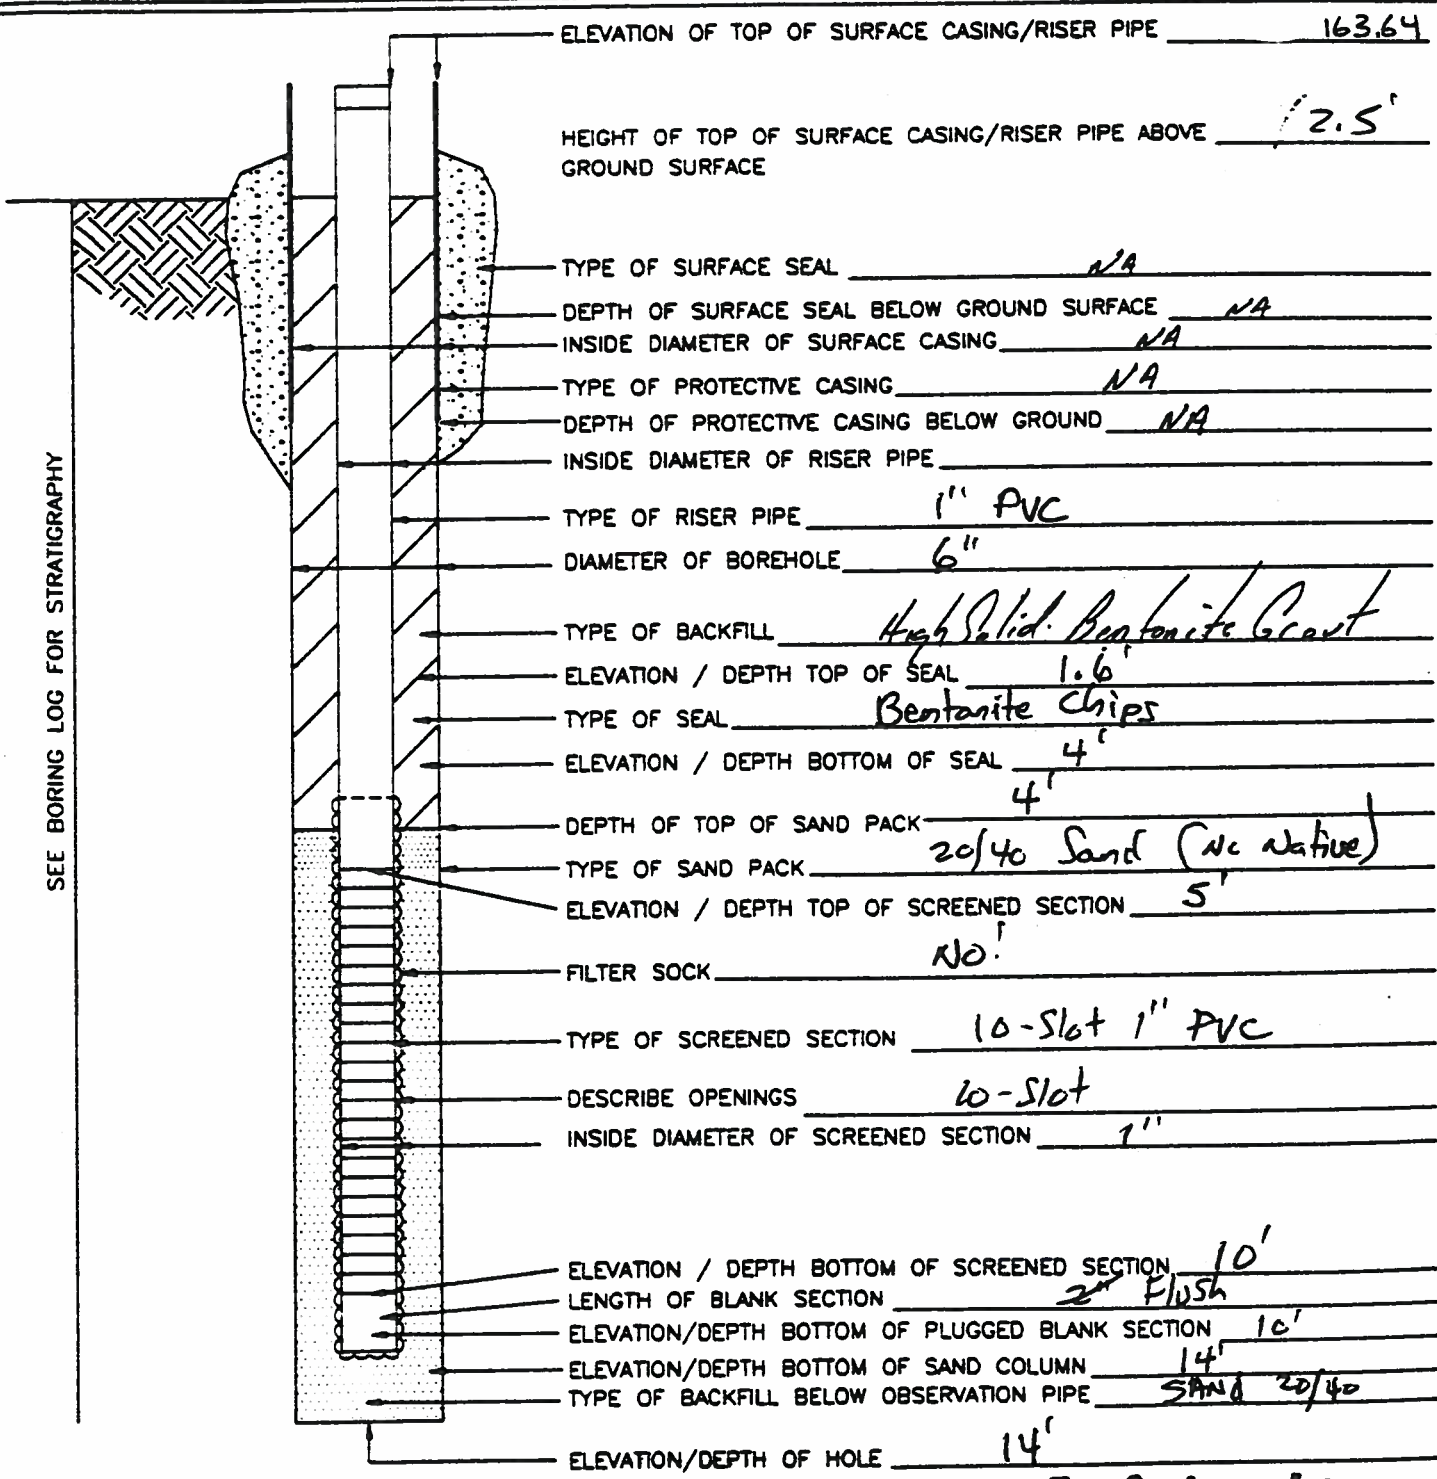 ELEVATION OF TOP OF SURFACE CASING/RISER PIPE 163.64
HEIGHT OF TOP OF SURFACE CASING/RISER PIPE ABOVE 2.5'
GROUND SURFACE
TYPE OF SURFACE SEAL NA
DEPTH OF SURFACE SEAL BELOW GROUND SURFACE NA
INSIDE DIAMETER OF SURFACE CASING NA
TYPE OF PROTECTIVE CASING NA
DEPTH OF PROTECTIVE CASING BELOW GROUND NA
INSIDE DIAMETER OF RISER PIPE
TYPE OF RISER PIPE 1" PVC
DIAMETER OF BOREHOLE 6"
TYPE OF BACKFILL High Solid Bentonite Grout
ELEVATION / DEPTH TOP OF SEAL 1.6'
TYPE OF SEAL Bentonite Chips
ELEVATION / DEPTH BOTTOM OF SEAL 4'
DEPTH OF TOP OF SAND PACK 4'
TYPE OF SAND PACK 20/40 Sand (No Native)
ELEVATION / DEPTH TOP OF SCREENED SECTION 5'
FILTER SOCK NO!
TYPE OF SCREENED SECTION 10-Slot 1" PVC
DESCRIBE OPENINGS 10-Slot
INSIDE DIAMETER OF SCREENED SECTION 1"
ELEVATION / DEPTH BOTTOM OF SCREENED SECTION 10'
LENGTH OF BLANK SECTION Flush
ELEVATION/DEPTH BOTTOM OF PLUGGED BLANK SECTION 10'
ELEVATION/DEPTH BOTTOM OF SAND COLUMN 14'
TYPE OF BACKFILL BELOW OBSERVATION PIPE SAND 20/40
ELEVATION/DEPTH OF HOLE 14'
SEE BORING LOG FOR STRATIGRAPHY